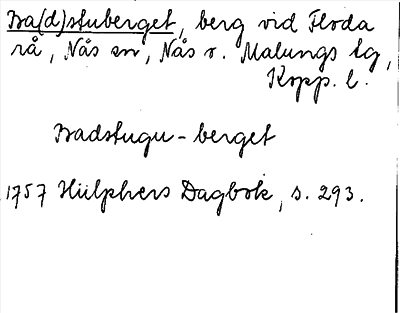 Ba(d)stuberget, berg vid Floda
rå, Nås sn, Nås o. Malungs tg,
Kopp. l.
Badstugu-berget
1757 Hülphers Dagbok, s. 293.